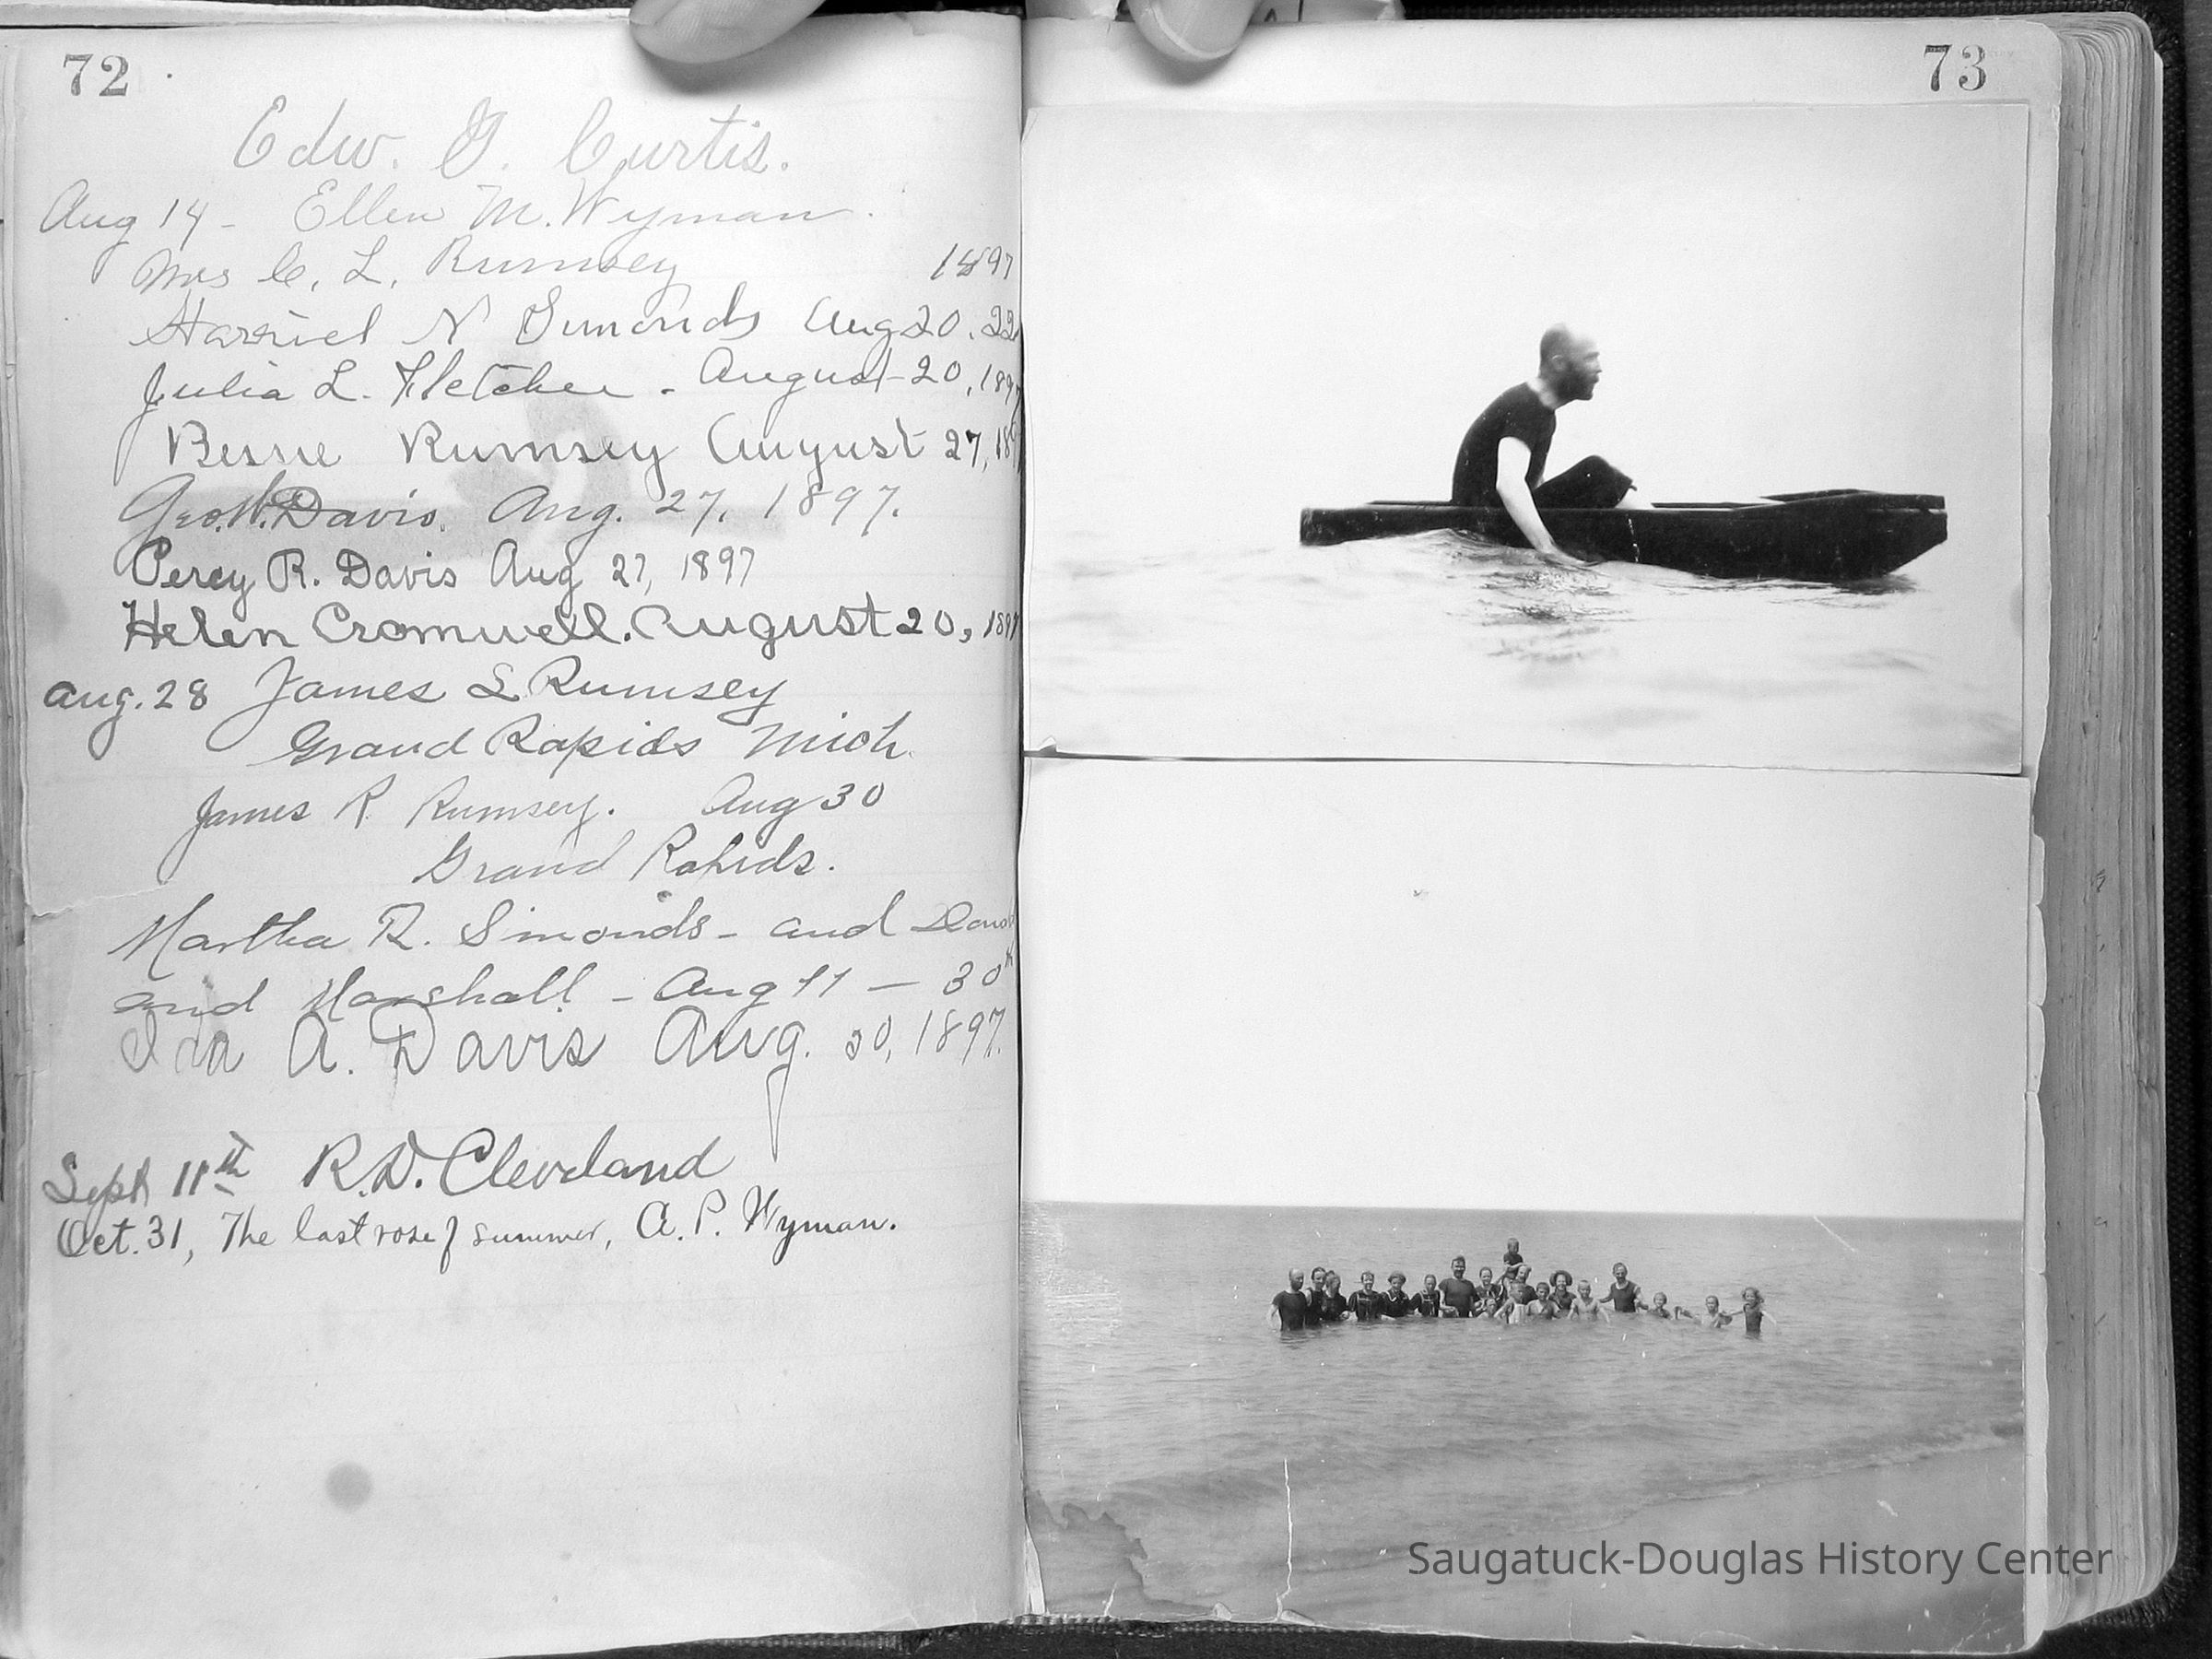 72
Edw. G. Curtis.
Aug 14 - Ellen M. Wyman.
Mrs C. L. Rumsey 1897
Harriet N Simonds Aug 20, 22
Julia L. Fletcher - August 20, 1897
Bessie Rumsey August 27, 189
Geo. W. Davis. Aug. 27, 1897.
Percy R. Davis Aug 27, 1897
Helen Cromwell. August 20, 1897
Aug. 28 James L Rumsey
Grand Rapids Mich.
James R Rumsey. Aug 30
Grand Rapids.
Martha R. Simonds - and
and Marshall - Aug 11 - 30th
Ida A. Davis Aug. 30, 1897.
Sept 11th R.D. Cleveland
Oct. 31, The last rose of summer, A. P. Wyman.
73
Saugatuck-Douglas History Center